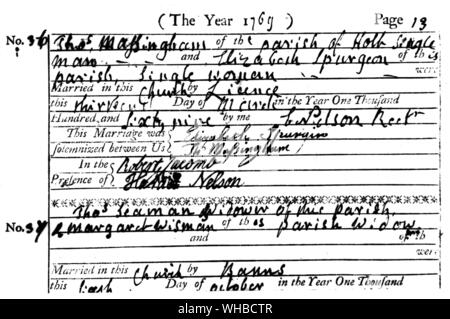 (The Year 1769) Page 13
No. 36 Thos. Massingham of the parish of Holt Single
man and Elizabeth Spurgeon of this
parish, Single woman were
Married in this Church by Licence
this Day of March in the Year One Thousand
Hundred and Sixty nine by me E. Nelson Rectr
This Marriage was Spurgin
solemnized between Us Thos Massingham
In the Robert
Presence of Nelson
No. 37 Thos. Seaman Widower of this parish,
& Margaret Wisman of this parish Widow
and of th
were
Married in this Church by Banns
this Day of October in the Year One Thousand
alamy
www.alamy.com